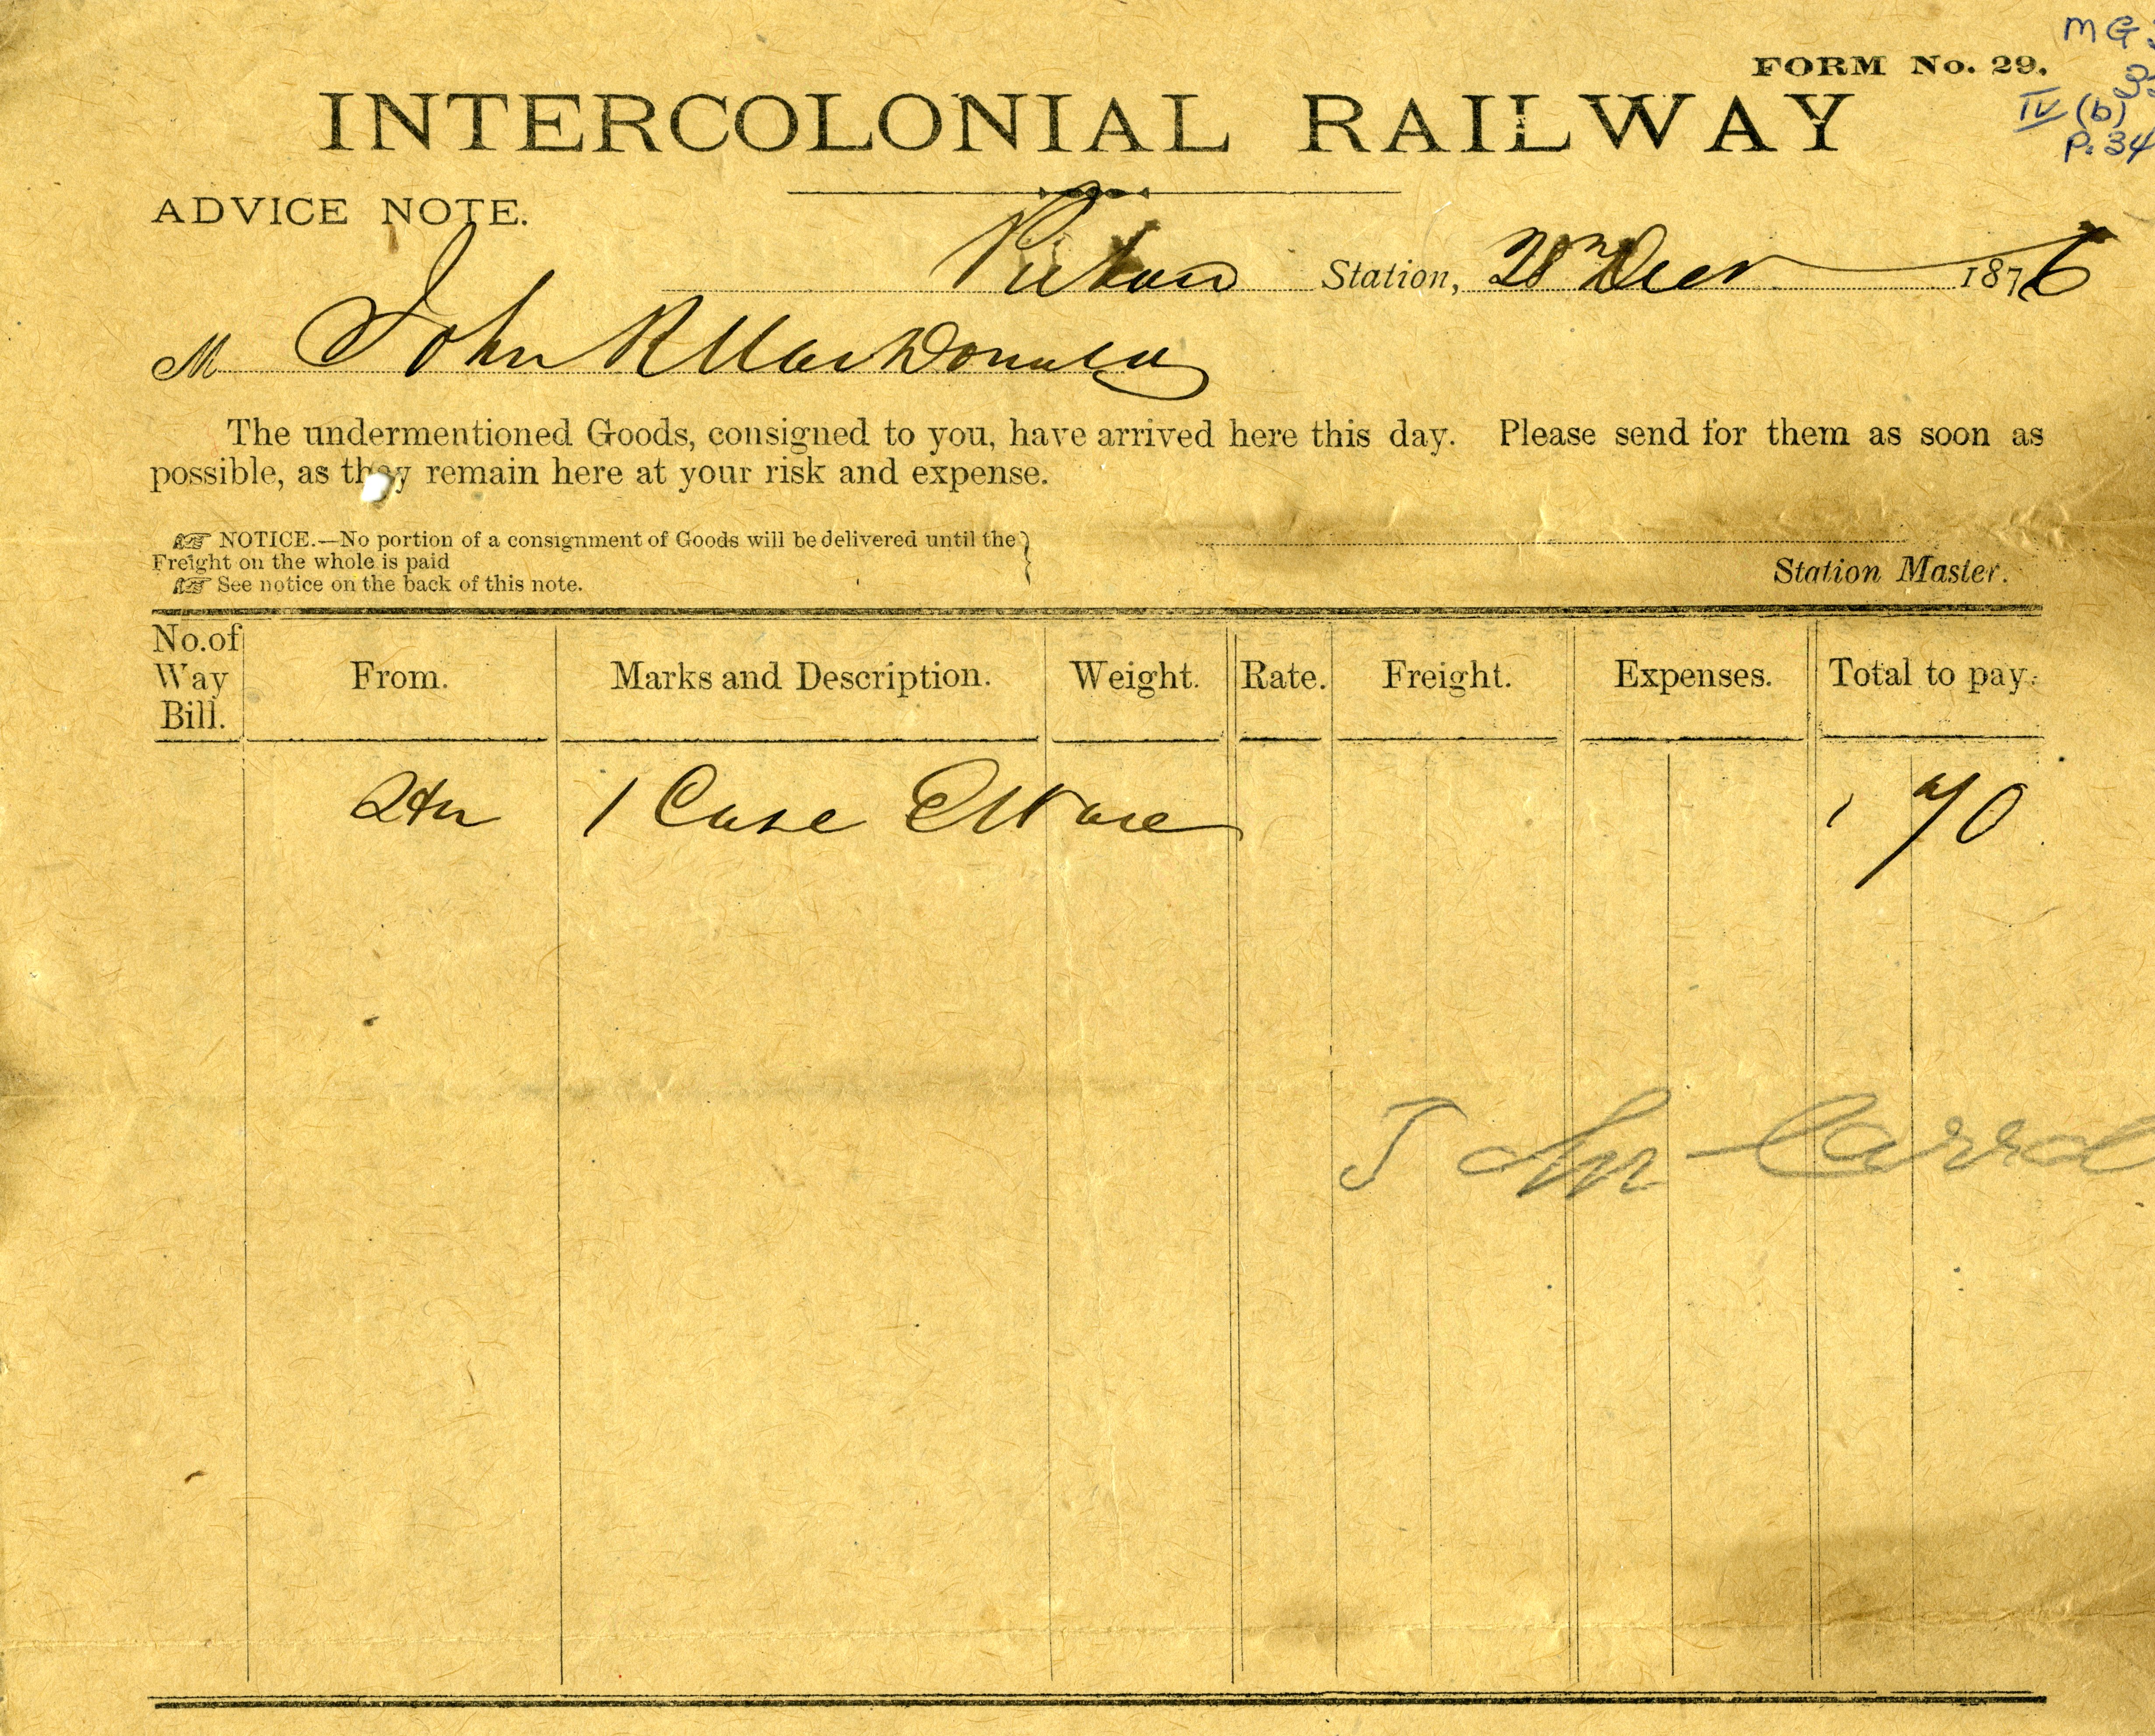 MG
FORM No. 29.
IV (b)
P. 34
INTERCOLONIAL RAILWAY
ADVICE NOTE.
Pictou Station, 28th Decr 1876
M John R MacDonald
The undermentioned Goods, consigned to you, have arrived here this day. Please send for them as soon as
possible, as they remain here at your risk and expense.
☞ NOTICE.—No portion of a consignment of Goods will be delivered until the
Freight on the whole is paid
☞ See notice on the back of this note.
Station Master.
No. of Way Bill. From. Marks and Description. Weight. Rate. Freight. Expenses. Total to pay.
1 Case EWare 70
John Carrol